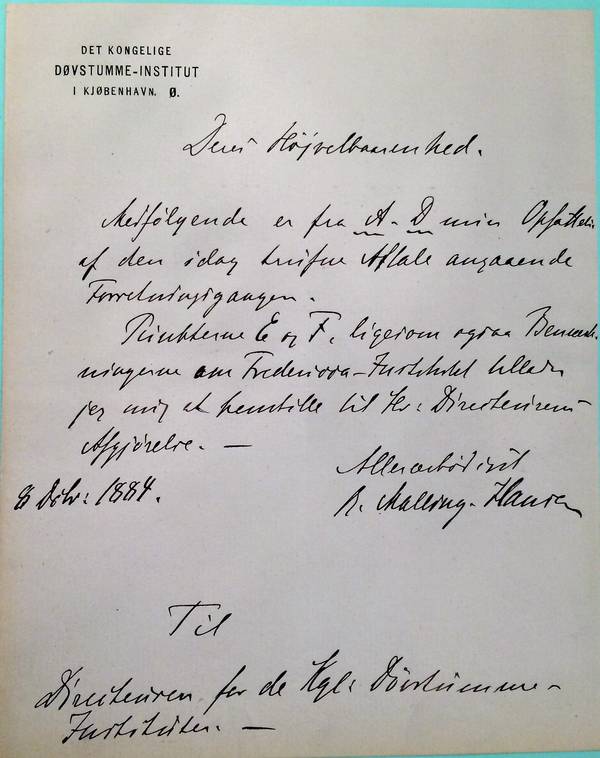 DET KONGELIGE
DØVSTUMME-INSTITUT
I KJØBENHAVN. Ø.
Deres Højvelbaarenhed.
Medfølgende er fra A-D min Opfattelse
af den idag trufne Aftale angaaende
Forretningsgangen.
Punkterne E og F, ligesom ogsaa Bemærk-
ningerne om Fredericia-Institutet tillader
jeg mig at henstille til Hr: Directeurens
Afgjørelse. —
Allerærbødigst
R. Malling-Hansen
8 Dcbr: 1884.
Til
Directeuren for de Kgl: Døvstumme-
Instituter. —